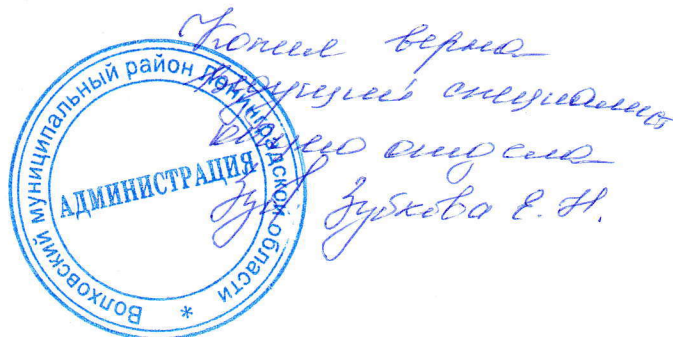 Копия верна
ведущий специалист
отдела
Зубкова Е.Н.
Волховский муниципальный район Ленинградской области
*
АДМИНИСТРАЦИЯ